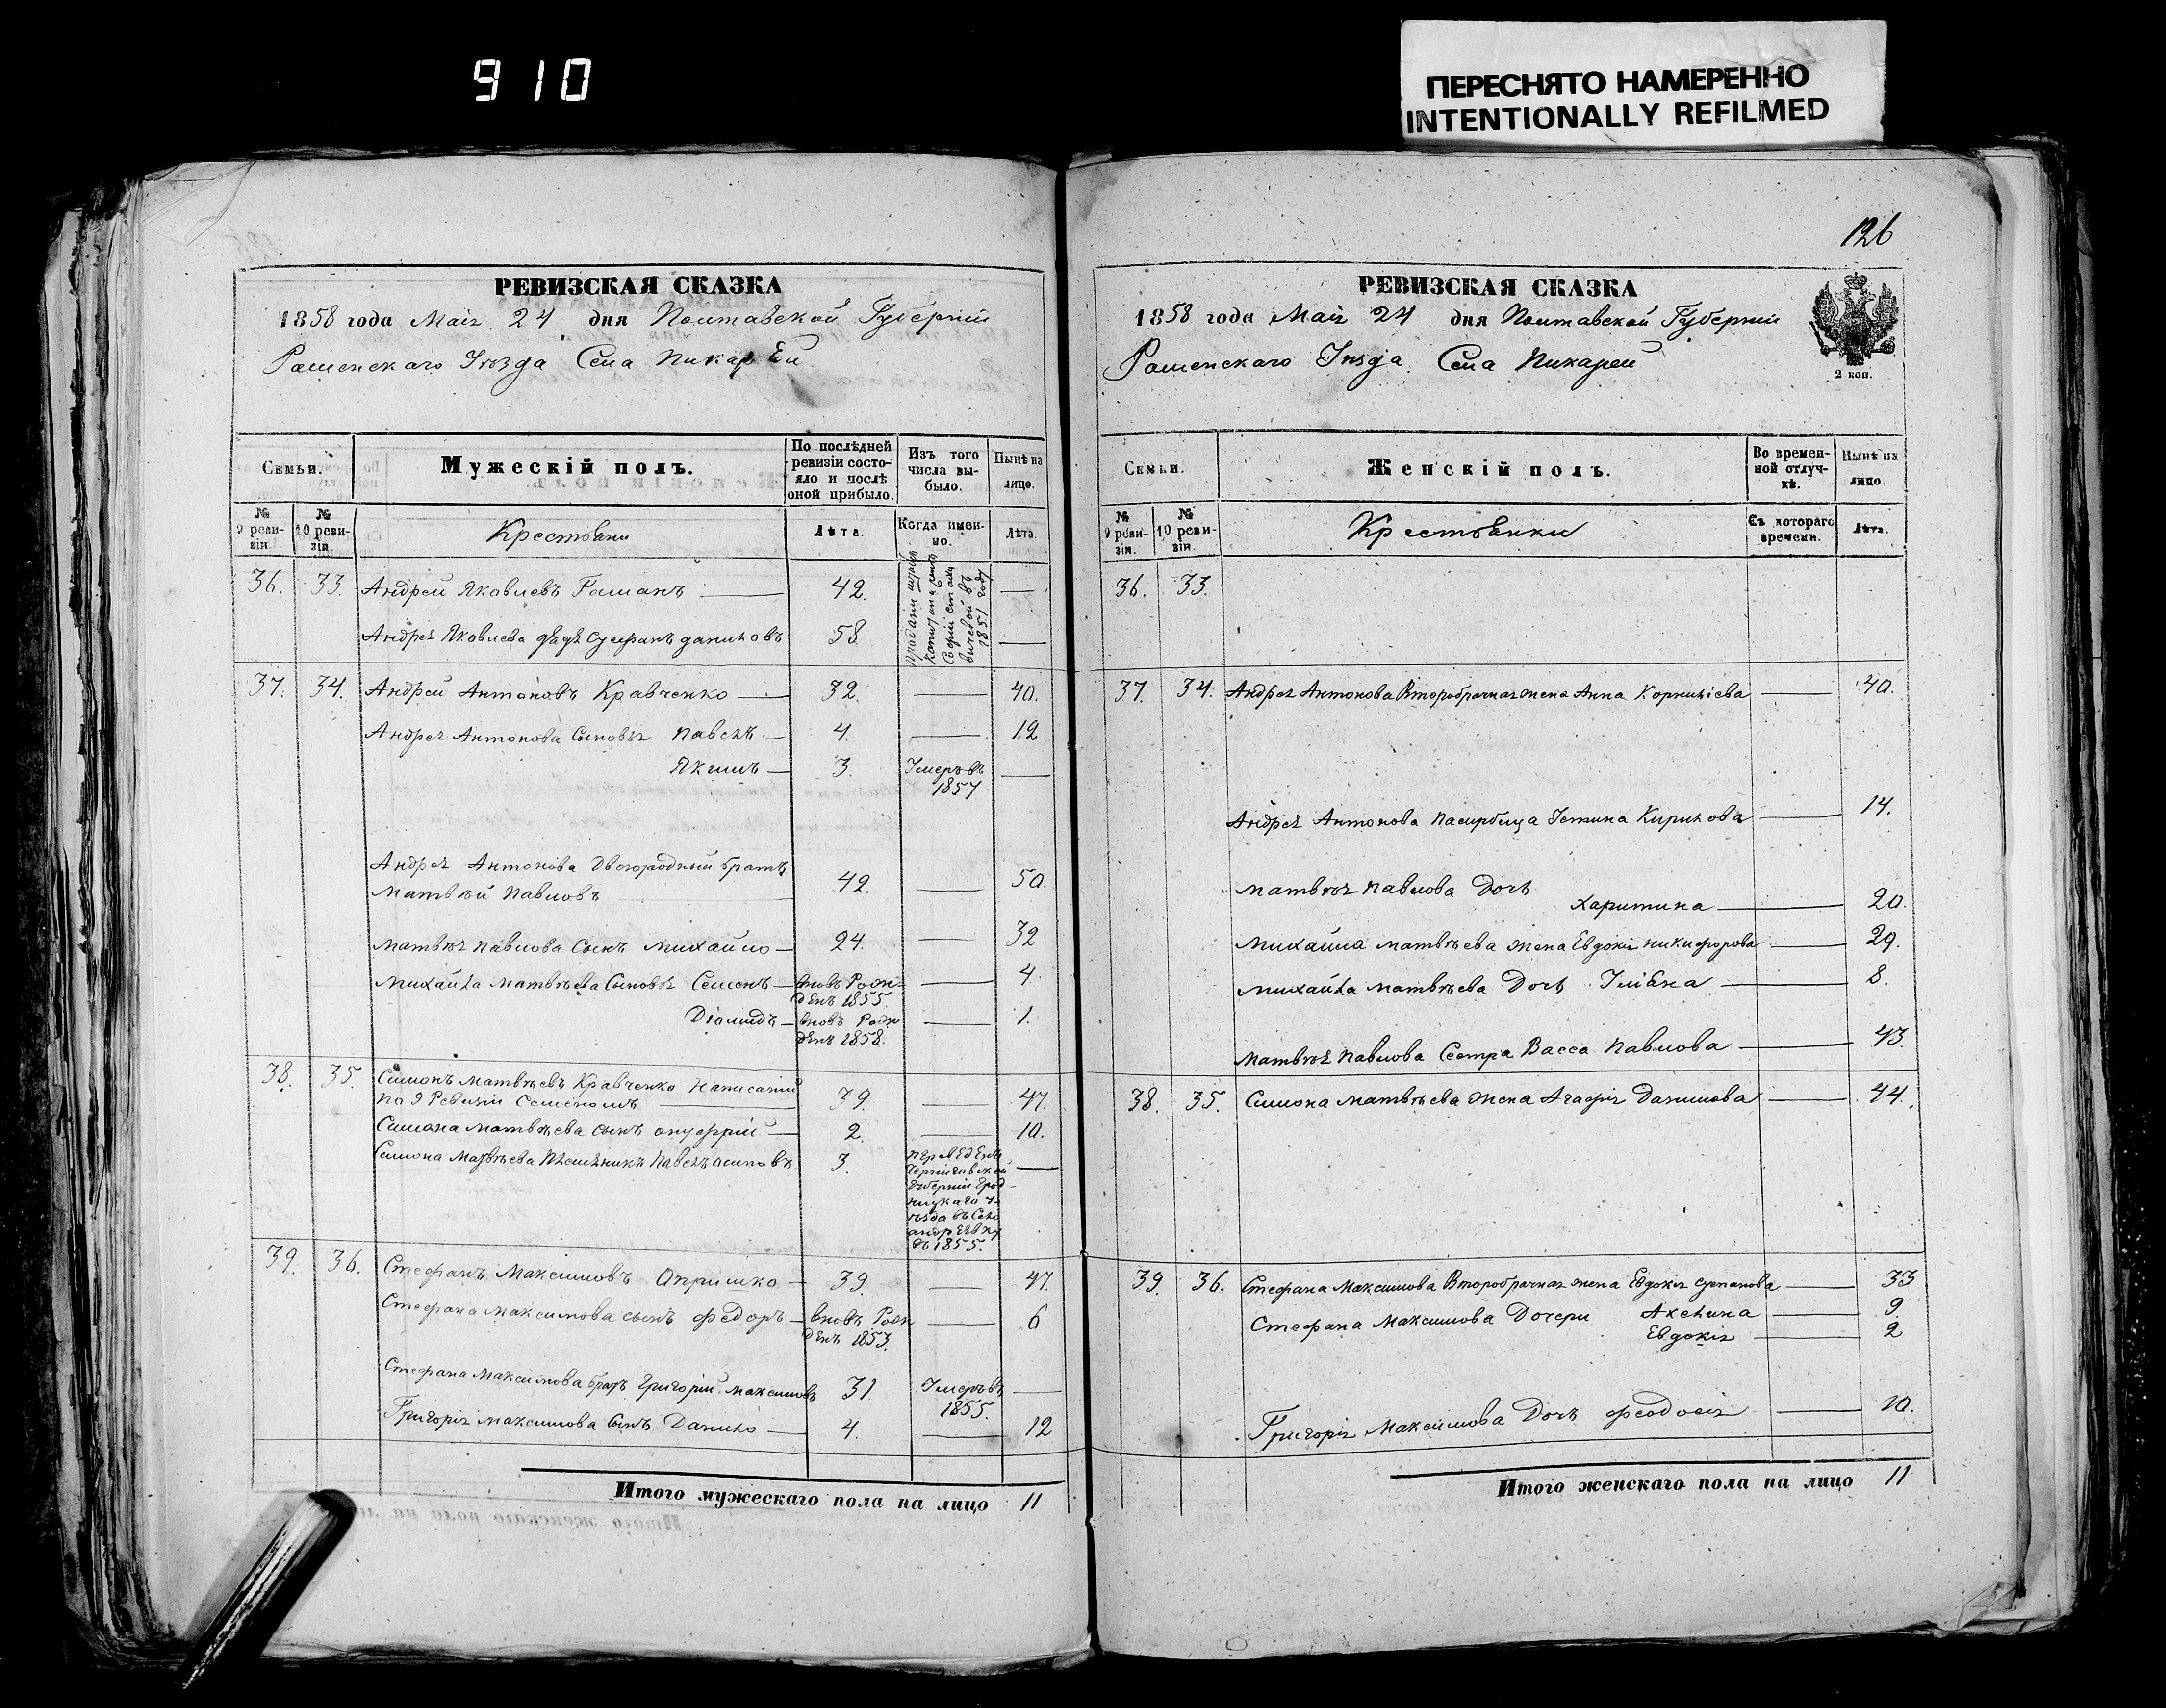 910
ПЕРЕСНЯТО НАМЕРЕННО
INTENTIONALLY REFILMED
РЕВИЗСКАЯ СКАЗКА
1858 года Маія 24 дня Полтавской Губерніи
Роменскаго Уѣзда Села Пикарей
Семьи.
Мужескій полъ.
По послѣдней ревизіи состояло и послѣ оной прибыло.
Изъ того числа выбыло.
Нынѣ на лицо.
№ 9 ревизіи.
№ 10 ревизіи.
Крестьяни
Лѣта.
Когда именно.
Лѣта.
36. 33. Андрей Яковлевъ Гаманъ — 42. —
Андрея Яковлева дядя даниловъ 58 —
1851 году
37. 34. Андрей Антоновъ Кравченко — 32. — 40.
Андрея Антонова Сыновья Павелъ — 4. — 12
Якимъ — 3. Умеръ въ 1857 —
Андрея Антонова Двоюродный братъ
Матвѣй Павловъ 42. — 50.
Матвѣя Павлова Сынъ Михайло — 24. — 32
Михайла Матвѣева Сыновья Семенъ — вновь Рожденъ 1855 — 4.
Діомидъ — вновь Рожденъ 1858. — 1.
38. 35. Симонъ Матвѣевъ Кравченко Написаній
по 9 Ревизіи Семеномъ 39. — 47.
Симона Матвѣева сынъ онуфрій — 2. — 10.
Симона Матвѣева Племяникъ Павелъ осиповъ 3. —
Черниговской
Губерніи
въ 1855.
39. 36. Стефанъ Максимовъ Опришко — 39. — 47.
Стефана Максимова сынъ Федоръ — вновь Рожденъ 1853. — 6
Стефана Максимова братъ Григорій Максимовъ 31 Умеръ въ 1855. —
Григорія Максимова Сынъ Данило — 4. — 12
Итого мужескаго пола на лицо 11
126
РЕВИЗСКАЯ СКАЗКА
1858 года Маія 24 дня Полтавской Губерніи
Роменскаго Уѣзда Села Пикарей
2 коп.
Семьи.
Женскій полъ.
Во временной отлучкѣ.
Нынѣ на лицо.
№ 9 ревизіи.
№ 10 ревизіи.
Крестьянки
Съ котораго времени.
Лѣта.
36. 33.
37. 34. Андрея Антонова Второбрачная жена Анна Корниліева — 40.
Андрея Антонова Устина Кирилова — 14.
Матвѣя Павлова Дочь
Харитина — 20.
Михайла Матвѣева жена Евдокія Никифорова — 29.
Михайла Матвѣева Дочь — 8.
Матвѣя Павлова Сестра Васса Павлова — 43.
38. 35. Симона Матвѣева жена Агафія Данилова — 44.
39. 36. Стефана Максимова Второбрачная жена Евдокія — 33
Стефана Максимова Дочери Акелина — 9
Евдокія — 2
Григорія Максимова Дочь Феодосія — 10.
Итого женскаго пола на лицо 11